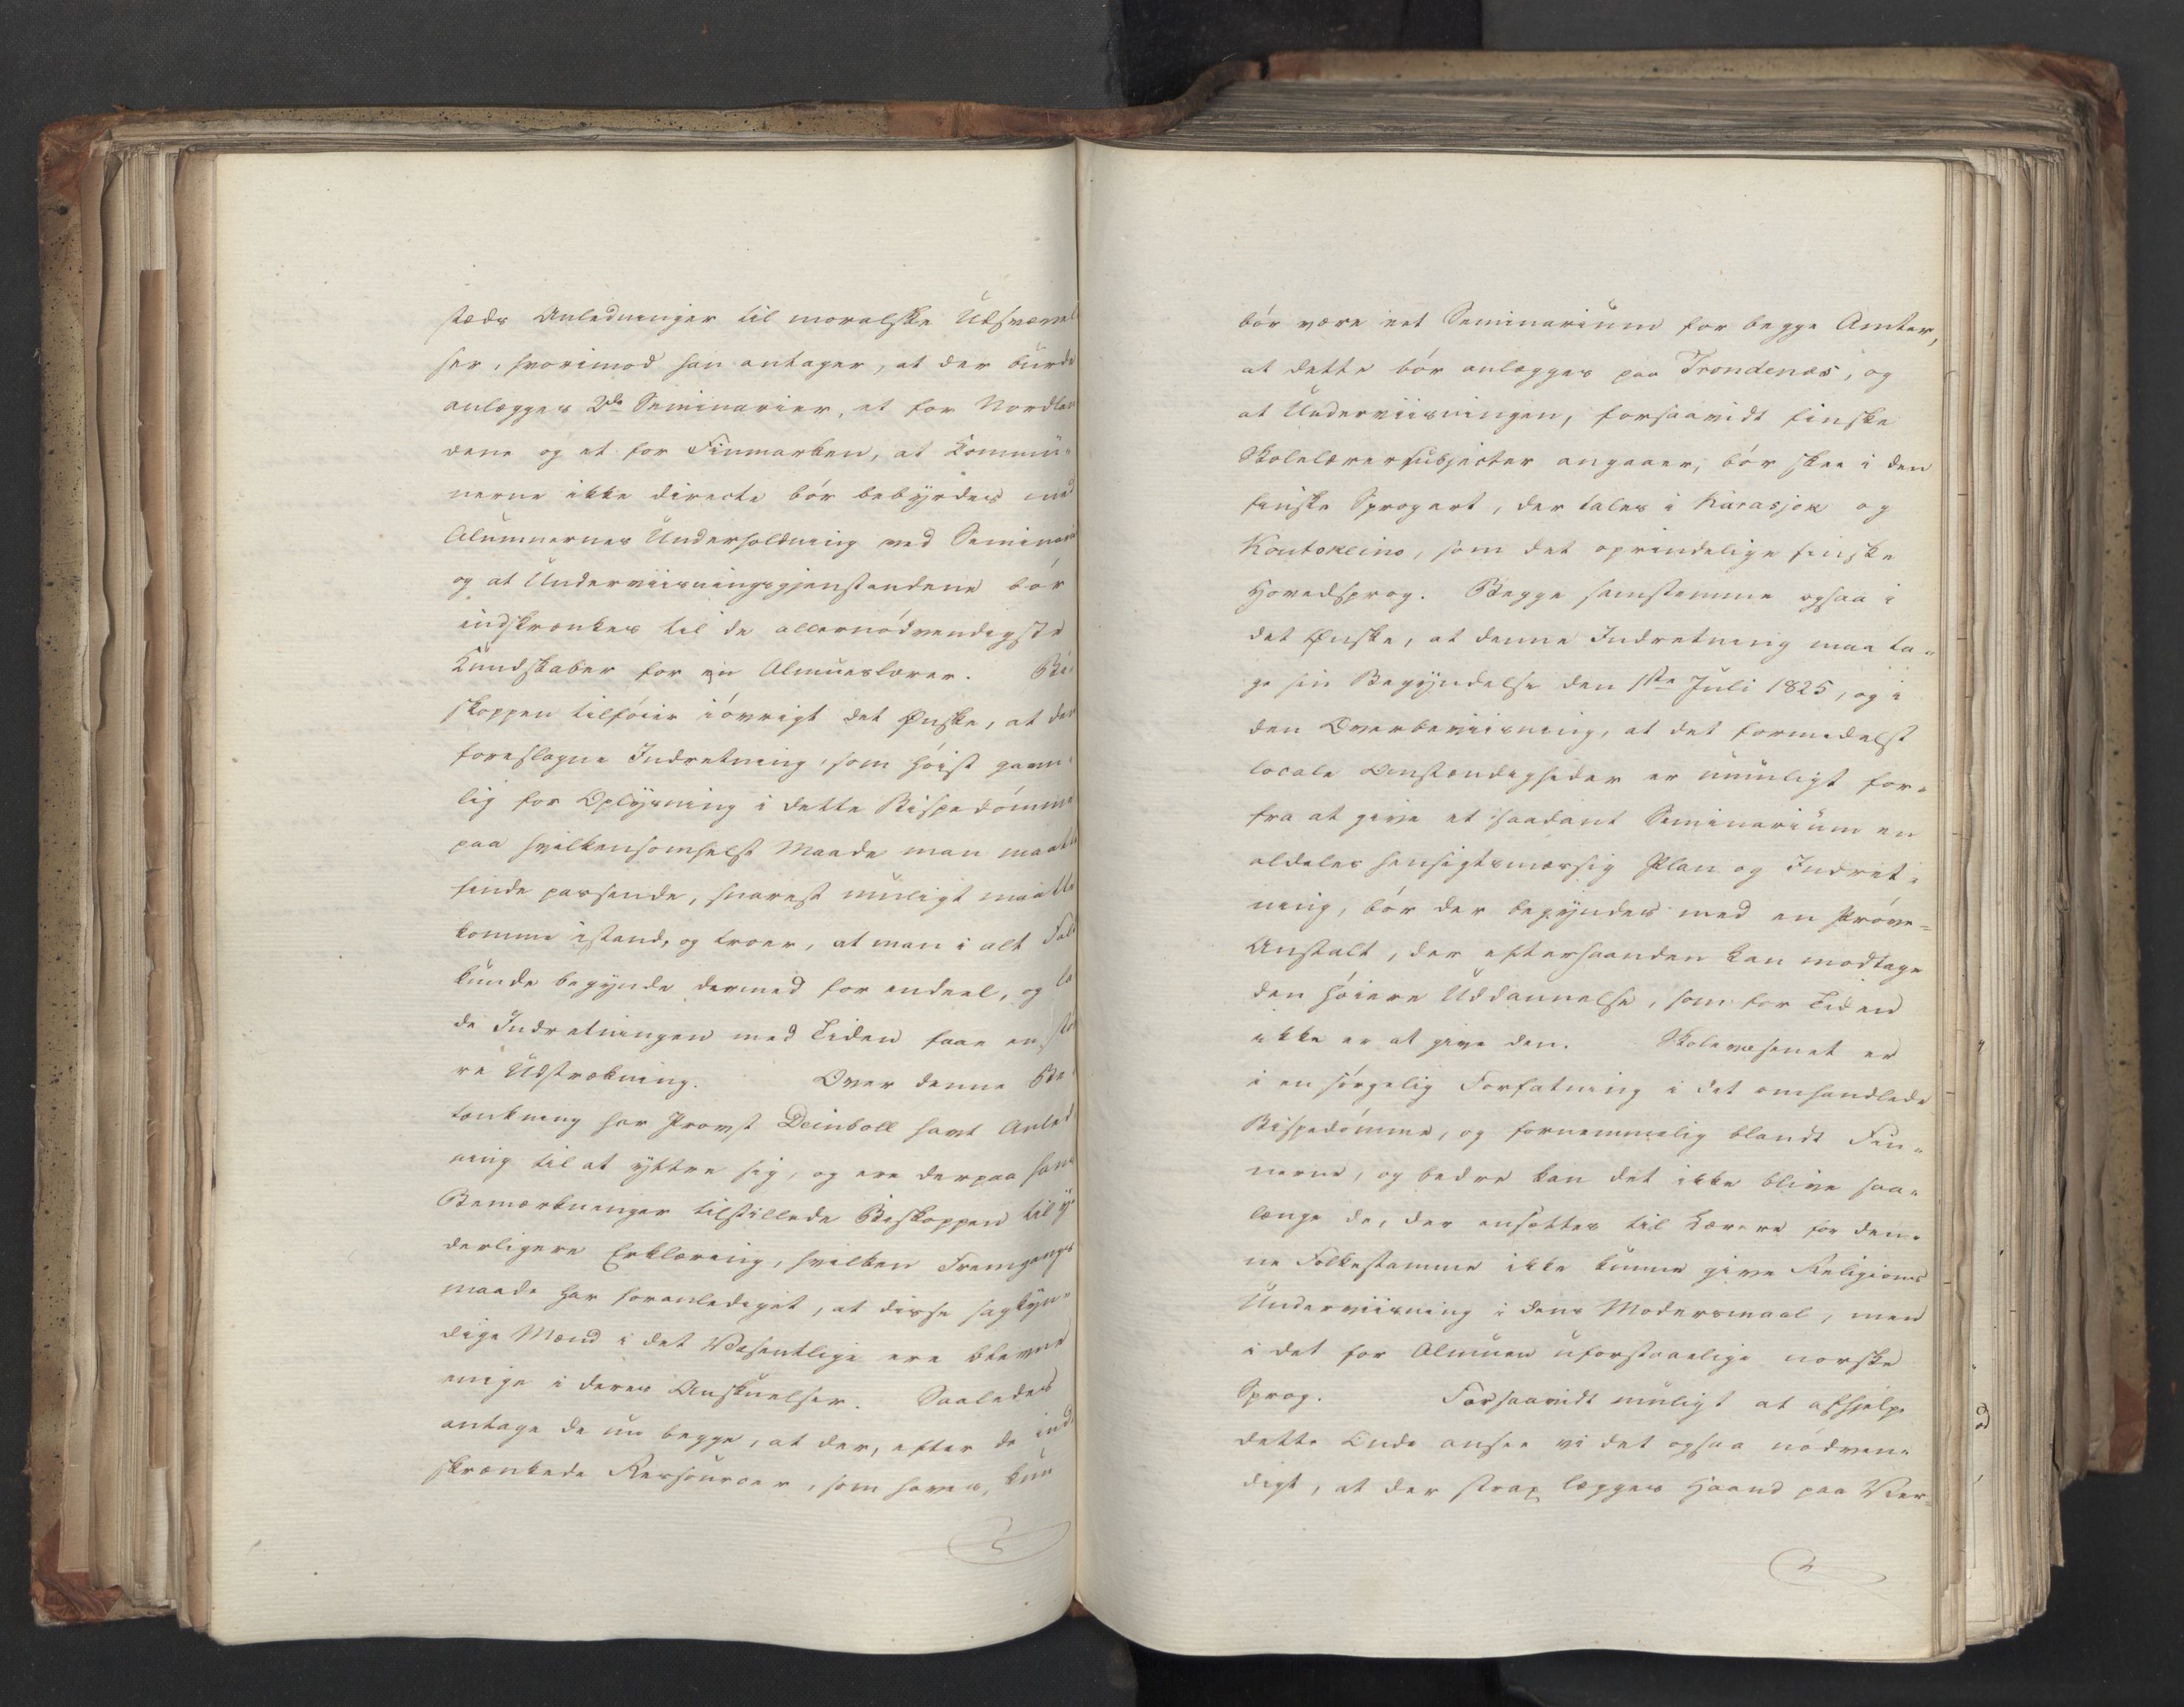 stæds Anledninger til moralske Udsvævel
ser, hvorimod han antager, at der burde
anlægges 2de Seminarier, et for Nordlan
dene og et for Finmarken, at Kommu-
nerne ikke directe bör bebyrdes med
Alumnernes Underholdning ved Seminari
og at Underviisningsgjenstandene bör
indskrænkes til de allernödvendigste
Kundskaber for en Almueslærer. Bi-
skoppen tilföier iövrigt det Ønske, at den
foreslagne Indretning, som höist gavn-
lig for Oplysning i dette Bispedömme
paa hvilkensomhelst Maade man maatte
finde passende, snarest muligt maatte
komme istand, og troer, at man i alt Fald
kunde begynde dermed for endeel, og la
de Indretningen med Tiden faae en stö
re Udstrækning. Over denne Be
tænkning har Provst Deinboll havt Anled
ning til at yttre sig, og ere derpaa hans
Bemærkninger tilstillede Biskoppen til y-
derligere Erklæring, hvilken Fremgangs
maade har foranlediget, at disse sagkyn-
dige Mænd i det Væsentlige ere blevne
enige i deres Anskuelser. Saaledes
antage de nu begge, at der, efter de ind-
skrænkede Ressourcer, som haves, kun
bör være eet Seminarium for begge Amter,
at dette bör anlægges paa Trondenæs, og
at Underviisningen, forsaavidt finske
Skolelærersubjecter angaaer, bör skee i den
finske Sprogart, der tales i Karasjok og
Koutokeino, som det oprindelige finske
Hovedsprog. Begge samstemme ogsaa i
det Ønske, at denne Indretning maa ta-
ge sin Begyndelse den 1ste Juli 1825, og i
den Overbeviisning, at det formedelst
locale Omstændigheder er umuligt for-
fra at give et saadant Seminarium en
aldeles hensigtsmæssig Plan og Indret-
ning, bör der begyndes med en Pröve-
Anstalt, der efterhaanden kan modtage
den höiere Uddannelse, som for Tiden
ikke er at give den. Skolevæsenet er
i en sörgelig Forfatning i det omhandlede
Bispedömme, og fornemmelig blandt Fin-
nerne, og bedre kan det ikke blive saa-
længe de, der ansættes til Lærere for den-
ne Folkestamme ikke kunne give Religions
Underviisning i dens Modersmaal, men
i det for Almuen uforstaaelige norske
Sprog. Forsaavidt muligt at afhjelpe
dette Onde ansee vi det ogsaa nödven-
digt, at der strax lægges Haand paa Vær-